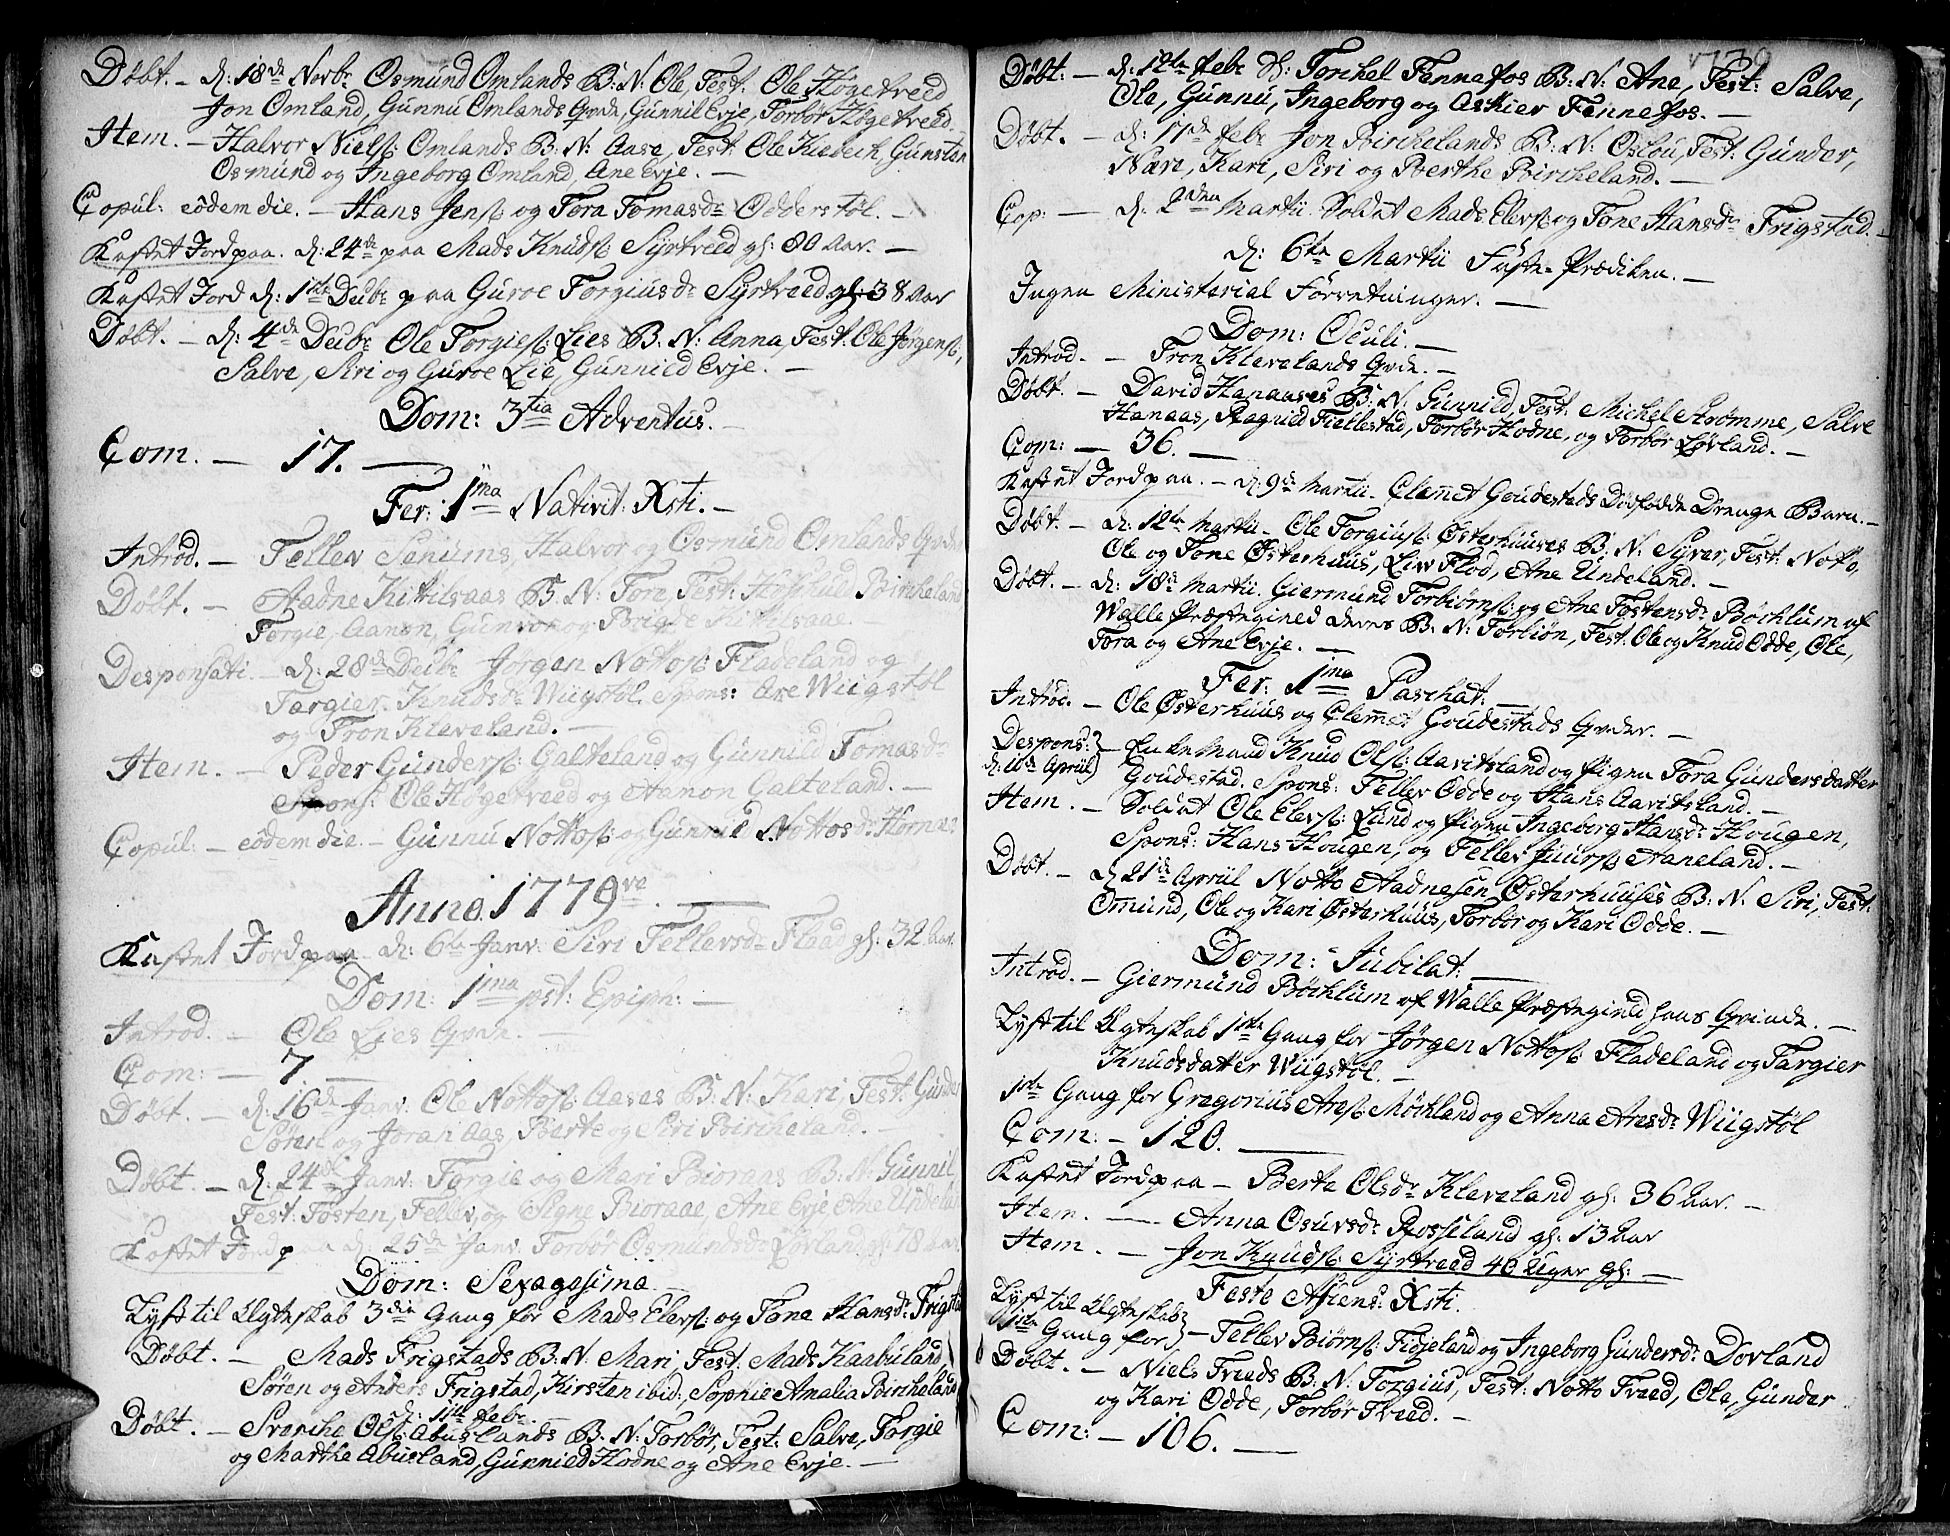 Døbt. - d: 18de Novbr Osmund Omlands B: N: Ole, Test: Ole Høgetveed
Jon Omland, Gunnu Omlands Qvde, Gunnil Evje, Torbør Høgetveed.
Item. - Halvor Nielss: Omlands B: N: Aase, Test: Ole Kiebech, Gunsten
Osmund og Ingeborg Omland, Ane Evje. -
Copul: eodem die. - Hans Jenss: og Tora Tomasdr Odderstøl. -
Kastet Jord paa. d: 24de paa Mads Knudss: Syrtveed gl: 80 Aar. -
Kastet Jord d: 1ste Decbr paa Guroe Torgiusdr Syrtveed gl: 38 Aar
Døbt. - d: 4de Decbr Ole Torgiess: Lies B: N: Anna, Test: Ole Jørgenss:,
Salve, Siri og Guroe Lie, Gunnild Evje. -
Dom: 3tia Adventus. -
Com. - 17. -
Fer: 1ma Nativit: Xsti. -
Introd. - Tellev Senums, Halvor og Osmund Omlands Qvder
Døbt. - Aadne Kittilsaas B: N: Tore, Test: Birkeland
Torgie, Aanon, Gunvor og Børigte Kittilsaae. -
Desponsati. - d: 28de Decbr Jørgen Nottoss: Fladeland og
Targier Knudsdr Wiigstøl. Spons: Are Wiigstøl
og Tron Klaveland. -
Item. - Peder Gunderss: Galteland og Gunnild Tomasdr
Spons: Ole Høgetveed og Aanon Galteland. -
Copul: - eodem die. - Gunnu Nottoss: og Gunnild Nottosdr Hornes
Anno. 1779ve. -
Kastet Jord paa d: 6te Janv: Siri Tellevsdr Flaad gl: 32 Aar.
Dom: 1ma post: Epiph: -
Introd. - Ole Lies Qvde. -
Com: - 7 -
Døbt. - d: 16de Janv: Ole Nottoss: Aases B: N: Kari, Test: Gunder
Søren og Joran Aas, Berte og Siri Bircheland. -
Døbt. - d: 24de Janv: Torgie og Mari Bioraas B: N: Gunnil
Test: Tosten, Tellev, og Signe Bioraae, Ane Evje Ane Undeland
Kastet Jord paa d: 25de Janv: Torbør Osmundsdr Løvland gl: 78 Aar
Dom: Sexagesima. -
Lyst til Ægteskab 3die Gang for Mads Elevss: og Tone Hansdr Frigstad
Døbt. - Mads Frigstads B: N: Mari, Test: Mads Kaabuland,
Søren og Anders Frigstad, Kirsten ibid:, Sophie Amalia Bircheland
d: 11te febr.
Døbt. - Svenche Olss: Abuslands B: N: Torbør, Test: Salve, Torgie
og Marthe Abusland, Gunnild Hodne og Ane Evje. -
1779
Døbt: - d: 12te febr Torkel Fennefos B: N: Ane, Test: Salve,
Ole, Gunnu, Ingeborg og Askier Fennefos. -
Døbt. - d: 17de febr Jon Birchelands B: N: Oslou, Test: Gunder,
Nære, Kari, Siri og Berthe Bircheland. -
Cop: - d: 2den Martii Soldat Mads Elevss: og Tone Hansdr Frigstad. -
d: 6te Martii Faste-Prædiken. -
Ingen Ministerial Forretninger. -
Dom: Oculi. -
Introd. - Tron Klevelands Qvde. -
Døbt. - David Hanaases B: N: Gunnild, Test: Michel Strømme, Salve
Hanaas, Ragnild Fiellestad, Torbør Hodne, og Torbør Løvland. -
Com: - 36. -
Kastet Jord paa. - d: 9de Martii. Clemet Goudestads Dødfødde Drenge Barn. -
Døbt. - d: 12te Martii. Ole Torgiuss: Østerhuuses B: N: Syver, Test: Notto,
Ole og Tone Østerhuus, Liw Flod, Ane Undeland. -
Døbt. - d: 18de Martii. Giermund Torbiørnss: og Ane Tostensdr Bøchlum af
Walle Præstegield deres B: N: Torbiøn, Test: Ole og Knud Odde, Ole,
Tora og Ane Evje. -
Fer: 1ma Paschat: -
Introd. - Ole Østerhuus og Clemet Goudestads Qvder. -
Despons: - Enkemand Knud Olss: Aavitsland og Pigen Tora Gundersdatter
d: 11te April) Goudestad. Spons: Tellev Odde og Hans Aavitsland. -
Item. - Soldat Ole Elevss: Lund og Pigen Ingeborg Hansdr Hougen,
Spons: Hans Hougen, og Tellev Juurss: Aaneland. -
Døbt. - d: 21de April Notto Aadnesen Østerhuuses B: N: Siri, Test:
Omund, Ole og Kari Østerhuus, Torbør og Kari Odde. -
Dom: Jubilat: -
Introd. - Giermund Bøchlum af Walle Præstegield hans Qvinde. -
Lyst til Ægteskab 1ste Gang for Jørgen Nottoss: Fladeland og Targier
Knudsdatter Wiigstøl. -
1ste Gang for Gregorius Aress: Møchland og Anna Aresdr Wiigstøl
Com: - 120. -
Kastet Jord paa - Berta Olsdr Klaveland gl: 36 Aar. -
Item. - Anna Osuvsdr Rosseland gl: 13 Aar
Item. - Jon Knudss: Syrtveed 40 Uger gl: -
Festo Ascens: Xsti.
Lyst til Ægteskab
1ste Gang for} - Tellev Biørnss: Fidjeland og Ingeborg Gundersdr Dovland
Døbt. - Niels Treeds B: N: Torgius, Test: Notto Treed, Ole, Gunder
og Kari Odde, Torbør Treed. -
Com: - 106. -